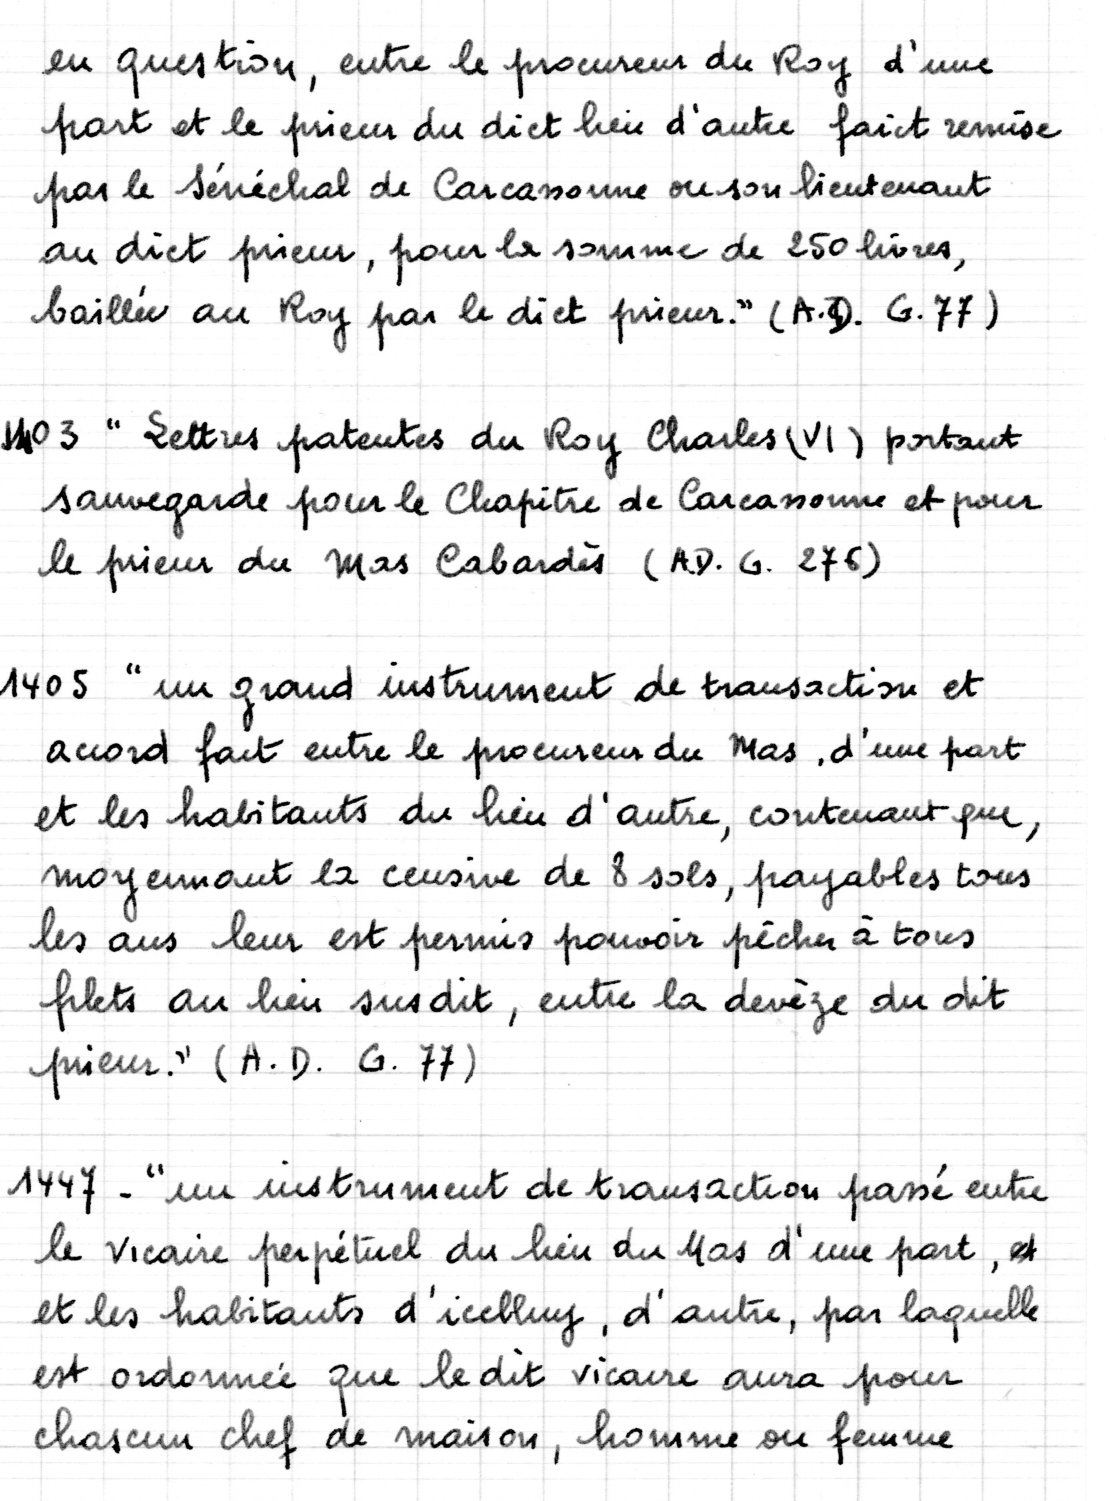 en question, entre le procureur du Roy d'une
part et le prieur du dict lieu d'autre faict remise
par le Sénéchal de Carcassonne ou son lieutenant
au dict prieur, pour la somme de 250 livres,
baillée au Roy par le dict prieur." (A.D. G. 77)
1403 " Lettres patentes du Roy Charles (VI) portant
sauvegarde pour le Chapitre de Carcassonne et pour
le prieur du Mas Cabardès (A.D. G. 276)
1405 "un grand instrument de transaction et
acord fait entre le procureur du Mas, d'une part
et les habitants du lieu d'autre, contenant que,
moyennant la censive de 8 sols, payables tous
les ans leur est permis pouvoir pêcher à tous
filets au lieu susdit, entre la devèze du dit
prieur." (A.D. G. 77)
1447 - "un instrument de transaction passé entre
le vicaire perpétuel du lieu du Mas d'une part,
et les habitants d'icelluy, d'autre, par laquelle
est ordonnée que le dit vicaire aura pour
chascun chef de maison, homme ou femme